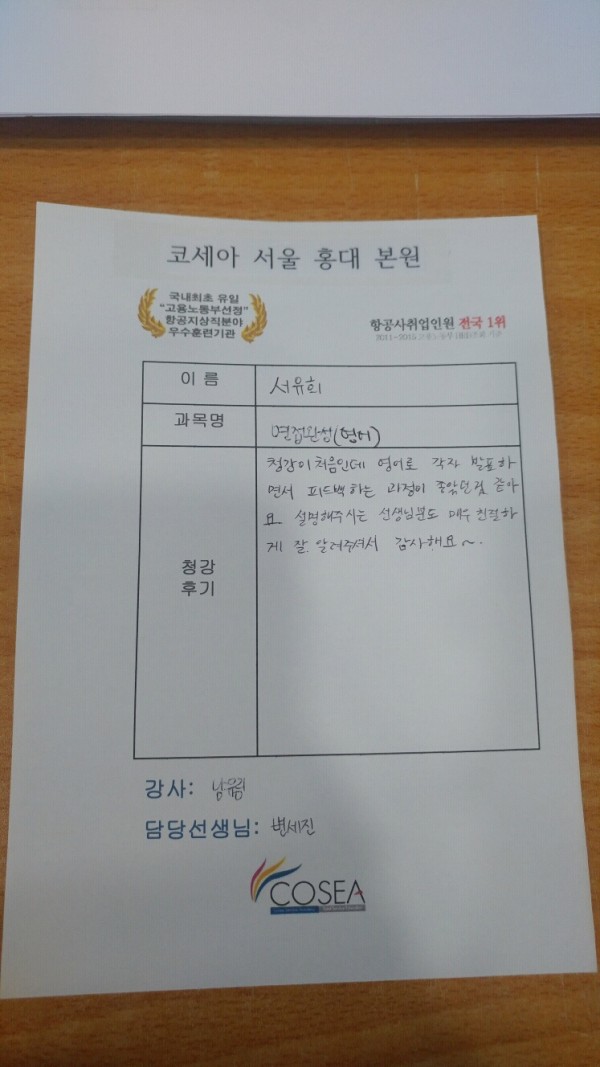 코세아 서울 홍대 본원
국내최초 유일
"고용노동부선정"
항공지상직분야
우수훈련기관
항공사취업인원 전국 1위
이 름
서유희
과목명
면접완성(영어)
청강
후기
청강이 처음인데 영어로 각자 발표하
면서 피드백하는 과정이 좋았던것 같아
요 설명해주시는 선생님분도 매우 친절하
게 잘 알려주셔서 감사해요~.
강사:
담당선생님: 변세진
COSEA